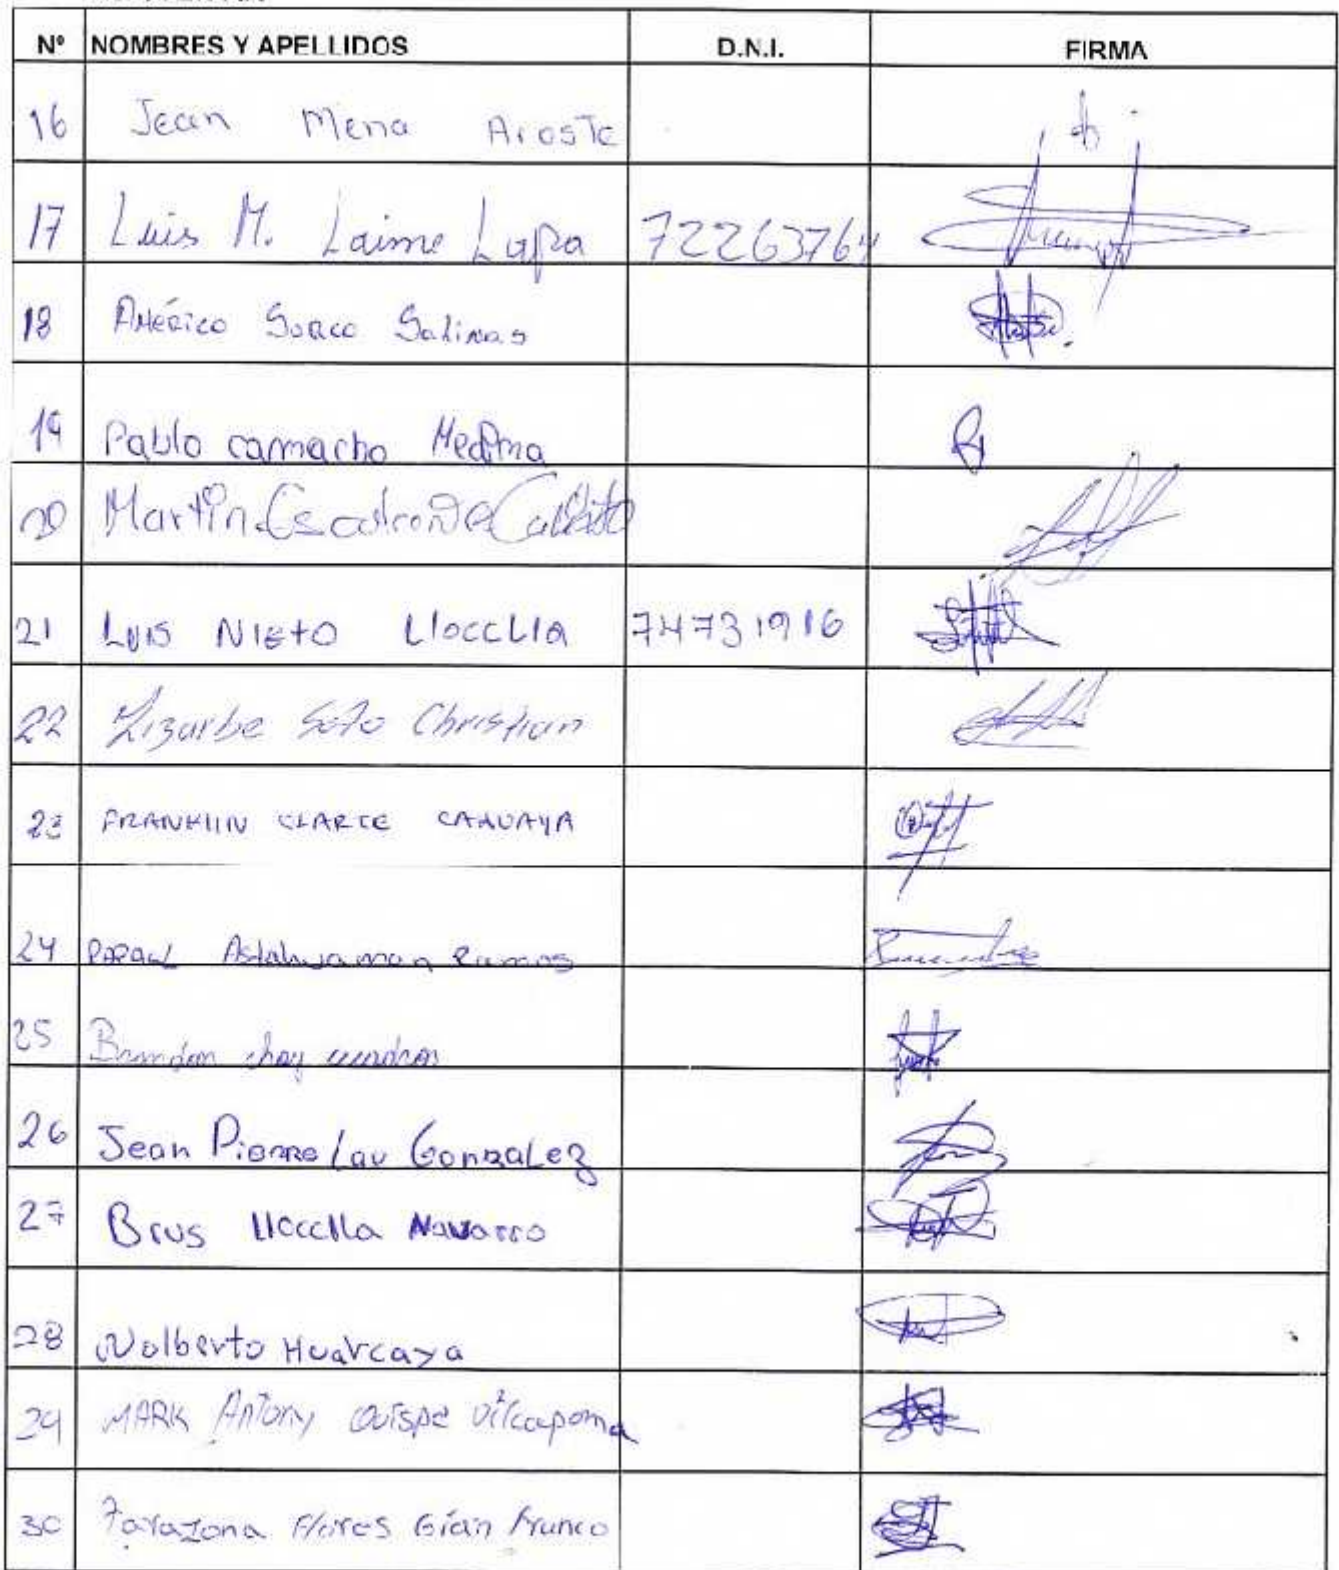 Nº NOMBRES Y APELLIDOS D.N.I. FIRMA
16 Jean Mena Aroste
17 Luis M. Laime Lapa 72263764
18 Américo Sorco Salinas
19 Pablo camacho Medina
20 Martin
21 Luis NIETO Llocclla 74731916
22 Lizarbe Soto Christian
23 FRANKLIN
24 Astahuaman Ramos
25 Brandon
26 Jean Pierre Lau Gonzalez
27 Brus llocclla Navarro
28 Nolberto Huarcaya
29 MARK Antony Quispe Vilcapoma
30 Tarazona Flores Gian Franco